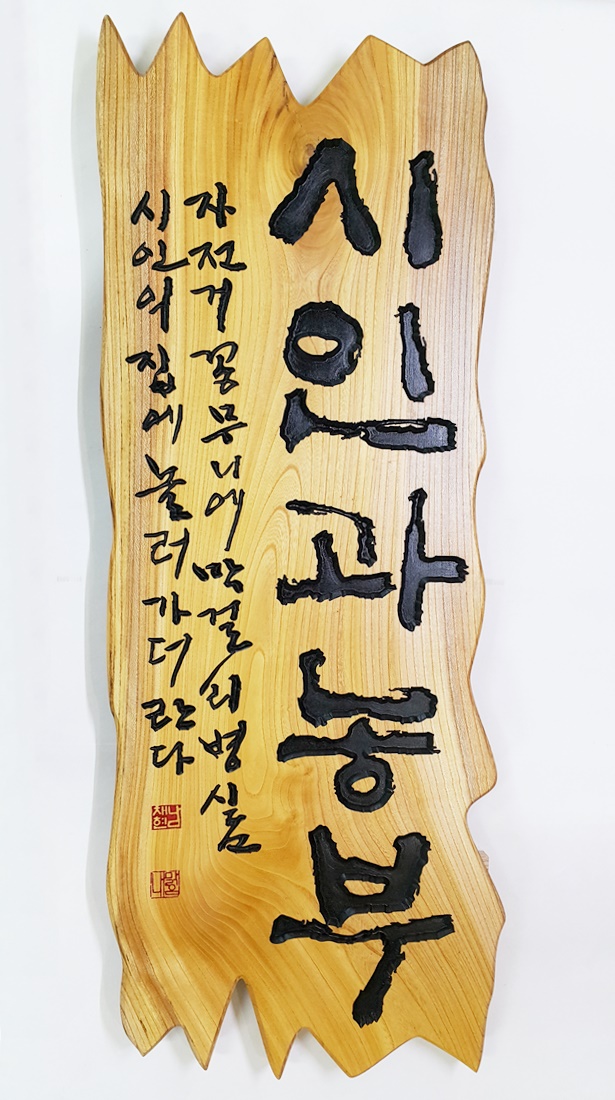 시인과 농부
자전거 꽁무니에 막걸리병 싣고
시인의 집에 놀러가더란다
남채현